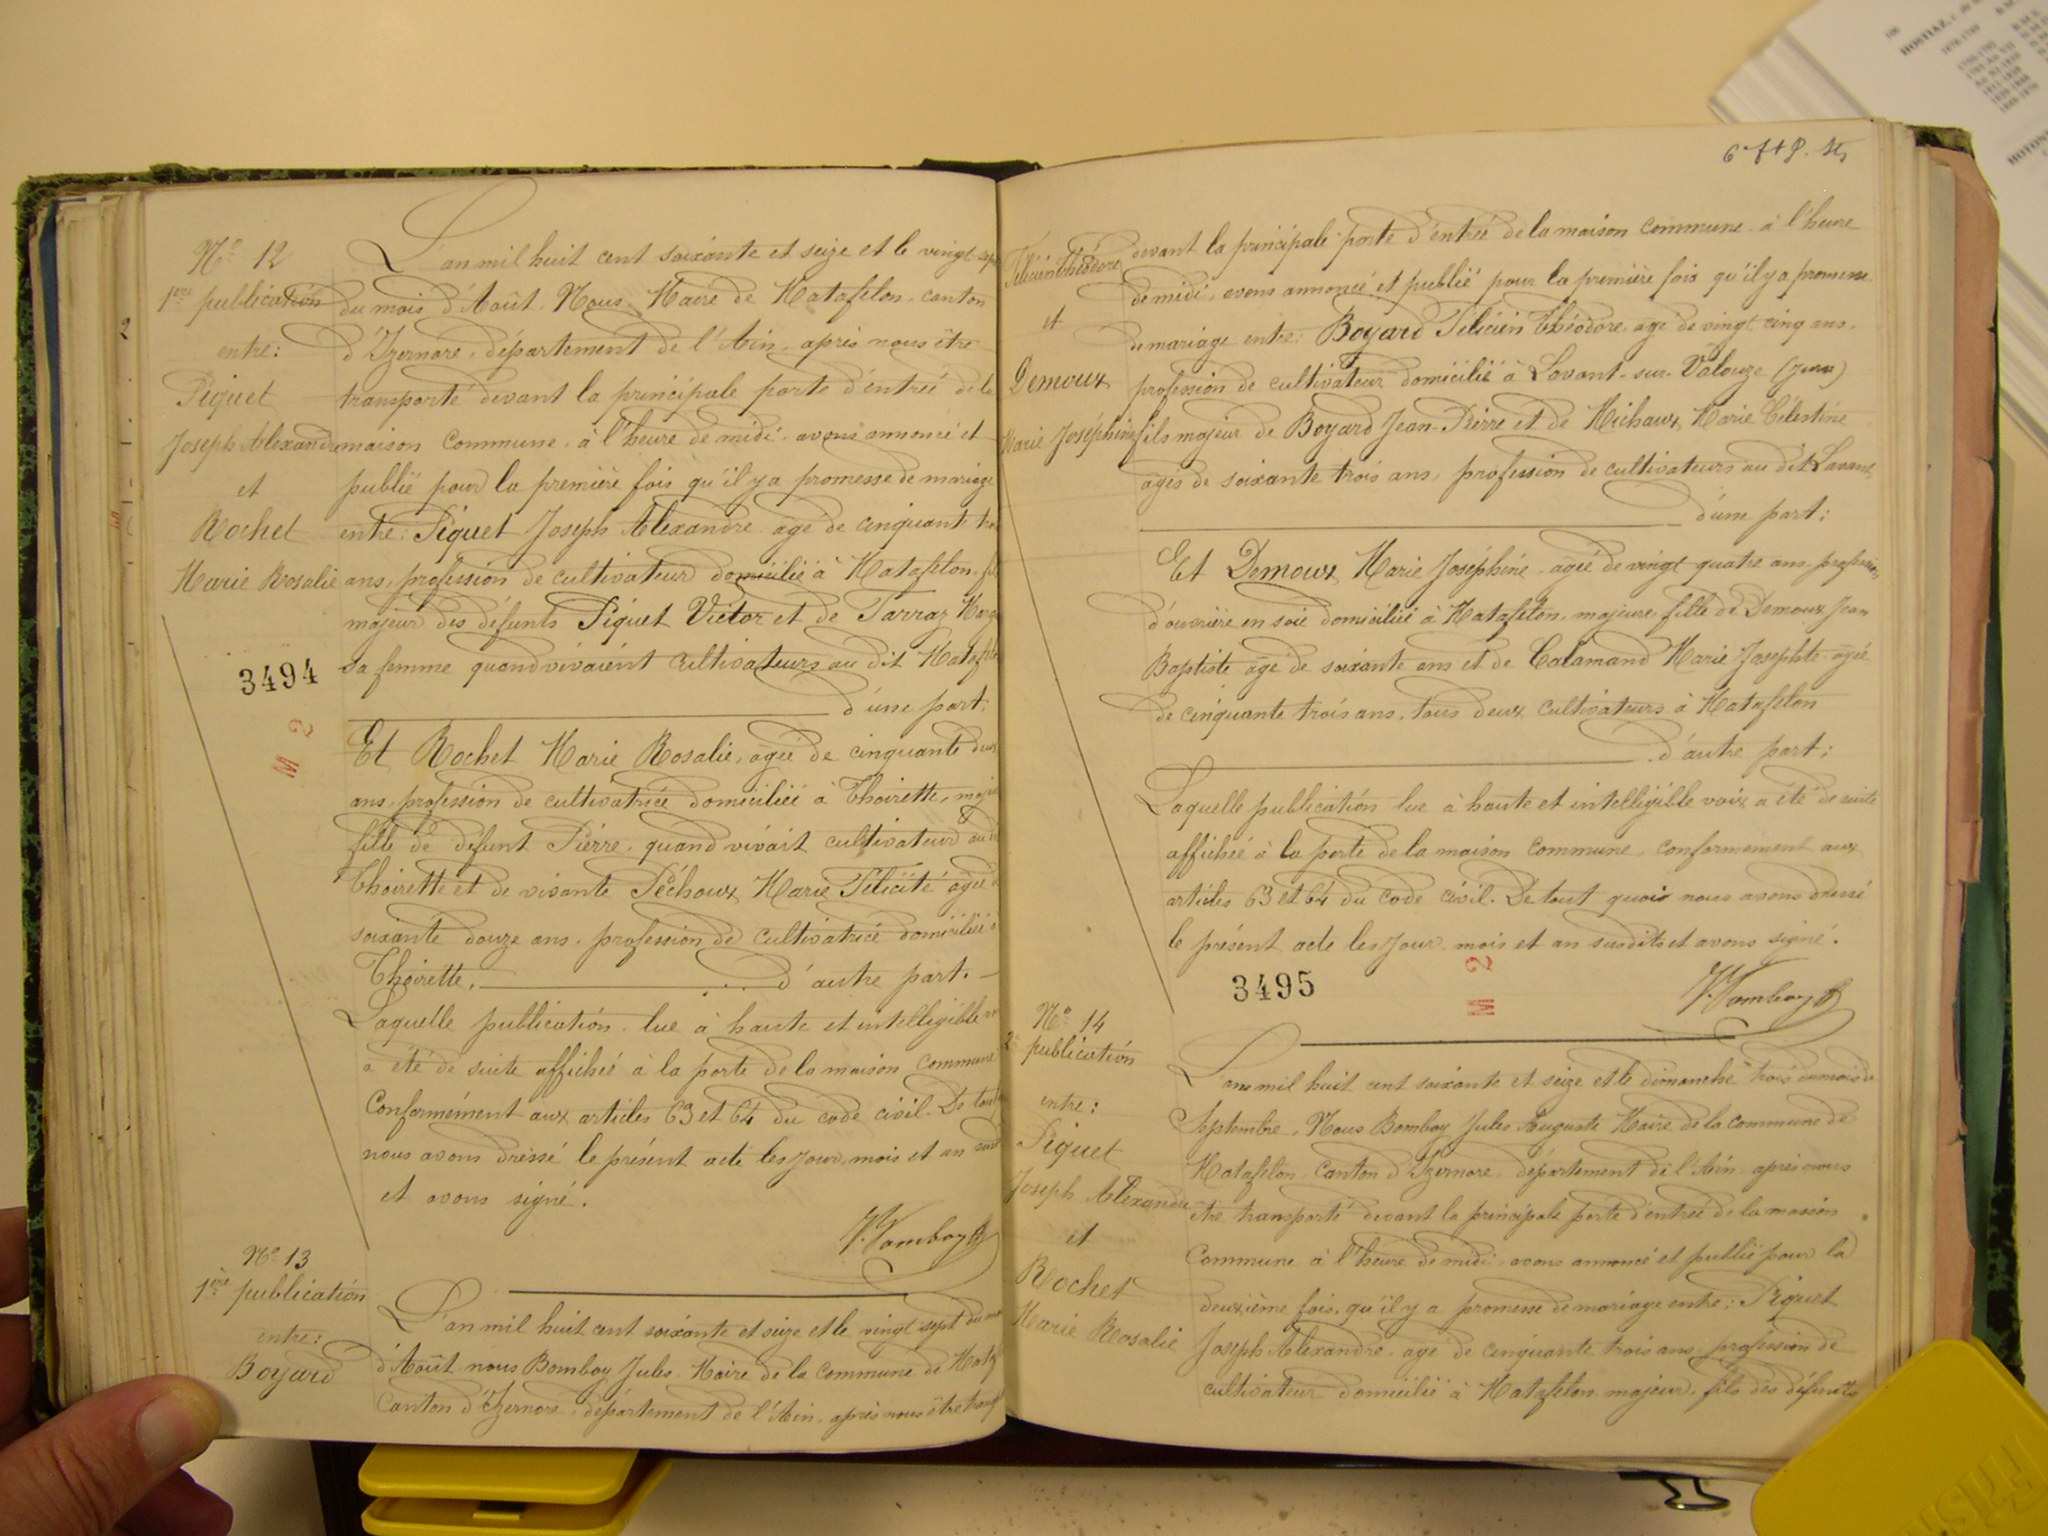 Nº 12
1ère publication
entre:
Piguet
Joseph Alexandre
et
Rochet
Marie Rosalie
3494
M 2
L'an mil huit cent soixante et seize et le vingt sept
du mois d'Août. Nous Maire de Matafelon, canton
d'Izernore, département de l'Ain, après nous être
transporté devant la principale porte d'entrée de la
maison commune, à l'heure de midi, avons annoncé et
publié pour la première fois qu'il y a promesse de mariage
entre: Piguet Joseph Alexandre âgé de cinquante trois
ans, profession de cultivateur domicilié à Matafelon, fils
majeur des défunts Piguet Victor et de Tarraz
sa femme quand vivaient cultivateurs au dit Matafelon
d'une part;
Et Rochet Marie Rosalie, âgée de cinquante deux
ans, profession de cultivatrice domiciliée à Thoirette, majeure
fille de défunt Pierre, quand vivait cultivateur au dit
Thoirette et de vivante Péchoux Marie Félicité âgée de
soixante douze ans, profession de cultivatrice domiciliée à
Thoirette, d'autre part.
Laquelle publication lue à haute et intelligible
a été de suite affichée à la porte de la maison commune
conformément aux articles 63 et 64 du code civil. De tout
nous avons dressé le présent acte les jour, mois et an susdits
et avons signé.
Nº 13
1ère publication
entre:
Boyard
L'an mil huit cent soixante et seize et le vingt sept du mois
d'Août nous Bomboy Jules Maire de la commune de
Canton d'Izernore, département de l'Ain, après nous être
Félicien Théodore
et
Demoux
Marie Joséphine
devant la principale porte d'entrée de la maison commune à l'heure
de midi, avons annoncé et publié pour la première fois qu'il y a promesse
de mariage entre: Boyard Félicien Théodore, âgé de vingt cinq ans,
profession de cultivateur domicilié à Lavant-sur-Valouze (Jura)
fils majeur de Boyard Jean-Pierre et de Michaux Marie Célestine
agés de soixante trois ans, profession de cultivateurs au dit Lavant
d'une part;
Et Demoux Marie Joséphine âgée de vingt quatre ans, profession
d'ouvrière en soie domiciliée à Matafelon, majeure, fille de Demoux Jean
Baptiste âgé de soixante ans et de Calamand Marie Josephte âgée
de cinquante trois ans, tous deux cultivateurs à Matafelon
d'autre part;
Laquelle publication lue à haute et intelligible voix a été de suite
affichée à la porte de la maison commune, conformement aux
articles 63 et 64 du code civil. De tout quoi nous avons dressé
le présent acte les jour, mois et an susdits et avons signé.
3495
M 2
Nº 14
2e publication
entre:
Piguet
Joseph Alexandre
et
Rochet
Marie Rosalie
L'an mil huit cent soixante et seize et le dimanche trois du mois de
Septembre, Nous Bomboy Jules Auguste Maire de la commune de
Matafelon, Canton d'Izernore, département de l'Ain, après nous
être transporté devant la principale porte d'entrée de la maison
Commune à l'heure de midi, avons annoncé et publié pour la
deuxième fois, qu'il y a promesse de mariage entre: Piguet
Joseph Alexandre, âgé de cinquante trois ans, profession de
cultivateur domicilié à Matafelon, majeur, fils des défunts